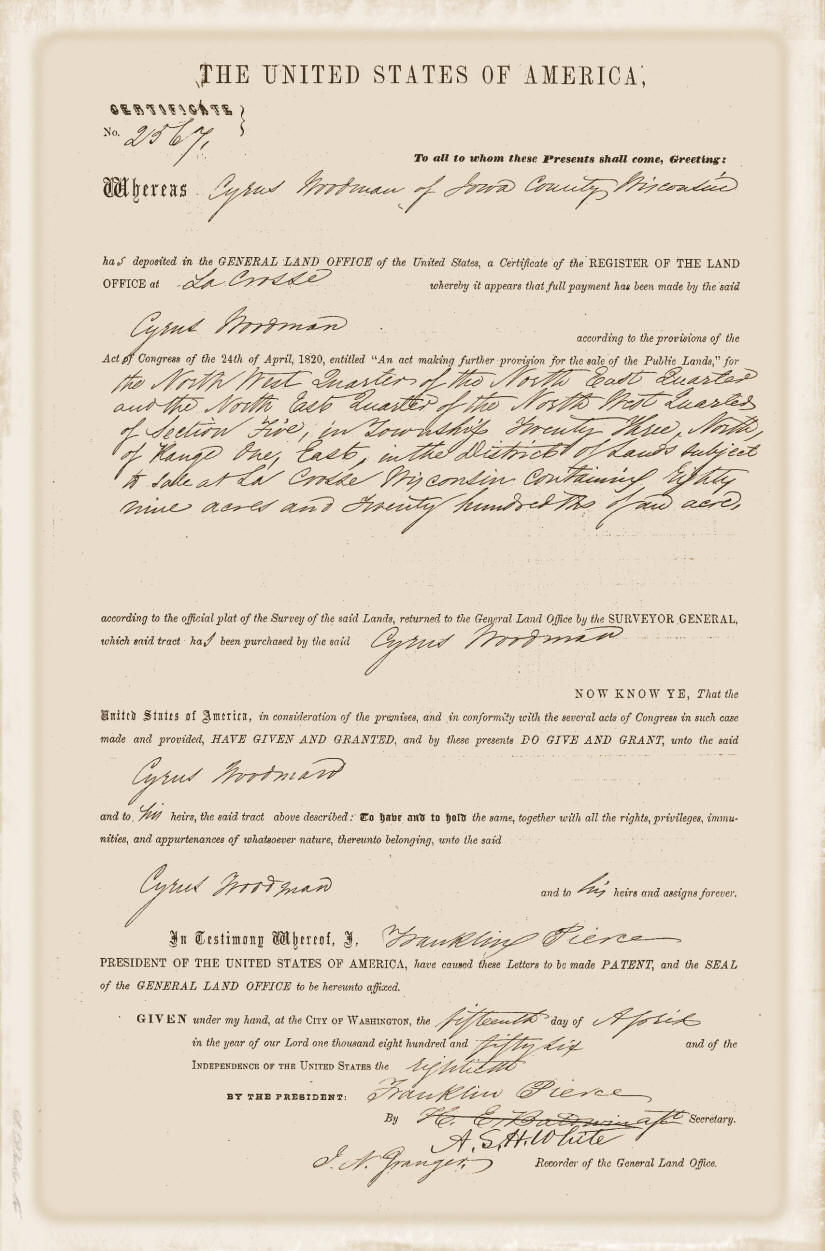 THE UNITED STATES OF AMERICA,
CERTIFICATE
No. 2567,
To all to whom these Presents shall come, Greeting:
Whereas Cyrus Woodman of Iowa County, Wisconsin
has deposited in the GENERAL LAND OFFICE of the United States, a Certificate of the REGISTER OF THE LAND
OFFICE at La Crosse whereby it appears that full payment has been made by the said
Cyrus Woodman according to the provisions of the
Act of Congress of the 24th of April, 1820, entitled “An act making further provision for the sale of the Public Lands,” for
the North West Quarter of the North East Quarter
and the North East Quarter of the North West Quarter
of Section Five, in Township Twenty Three, North,
of Range One, East, in the District of Lands subject
to sale at La Crosse Wisconsin containing Eighty
nine acres and Twenty hundredths of an acre,
according to the official plat of the Survey of the said Lands, returned to the General Land Office by the SURVEYOR GENERAL,
which said tract has been purchased by the said Cyrus Woodman
NOW KNOW YE, That the
United States of America, in consideration of the premises, and in conformity with the several acts of Congress in such case
made and provided, HAVE GIVEN AND GRANTED, and by these presents DO GIVE AND GRANT, unto the said
Cyrus Woodman
and to his heirs, the said tract above described: To have and to hold the same, together with all the rights, privileges, immu-
nities, and appurtenances of whatsoever nature, thereunto belonging, unto the said
Cyrus Woodman and to his heirs and assigns forever.
In Testimony Whereof, I, Franklin Pierce
PRESIDENT OF THE UNITED STATES OF AMERICA, have caused these Letters to be made PATENT, and the SEAL
of the GENERAL LAND OFFICE to be hereunto affixed.
GIVEN under my hand, at the CITY OF WASHINGTON, the fifteenth day of April
in the year of our Lord one thousand eight hundred and fifty six and of the
INDEPENDENCE OF THE UNITED STATES the eightieth
BY THE PRESIDENT: Franklin Pierce
By H. E. Baldwin asst Secretary.
A. S. H. White
J. N. Granger, Recorder of the General Land Office.